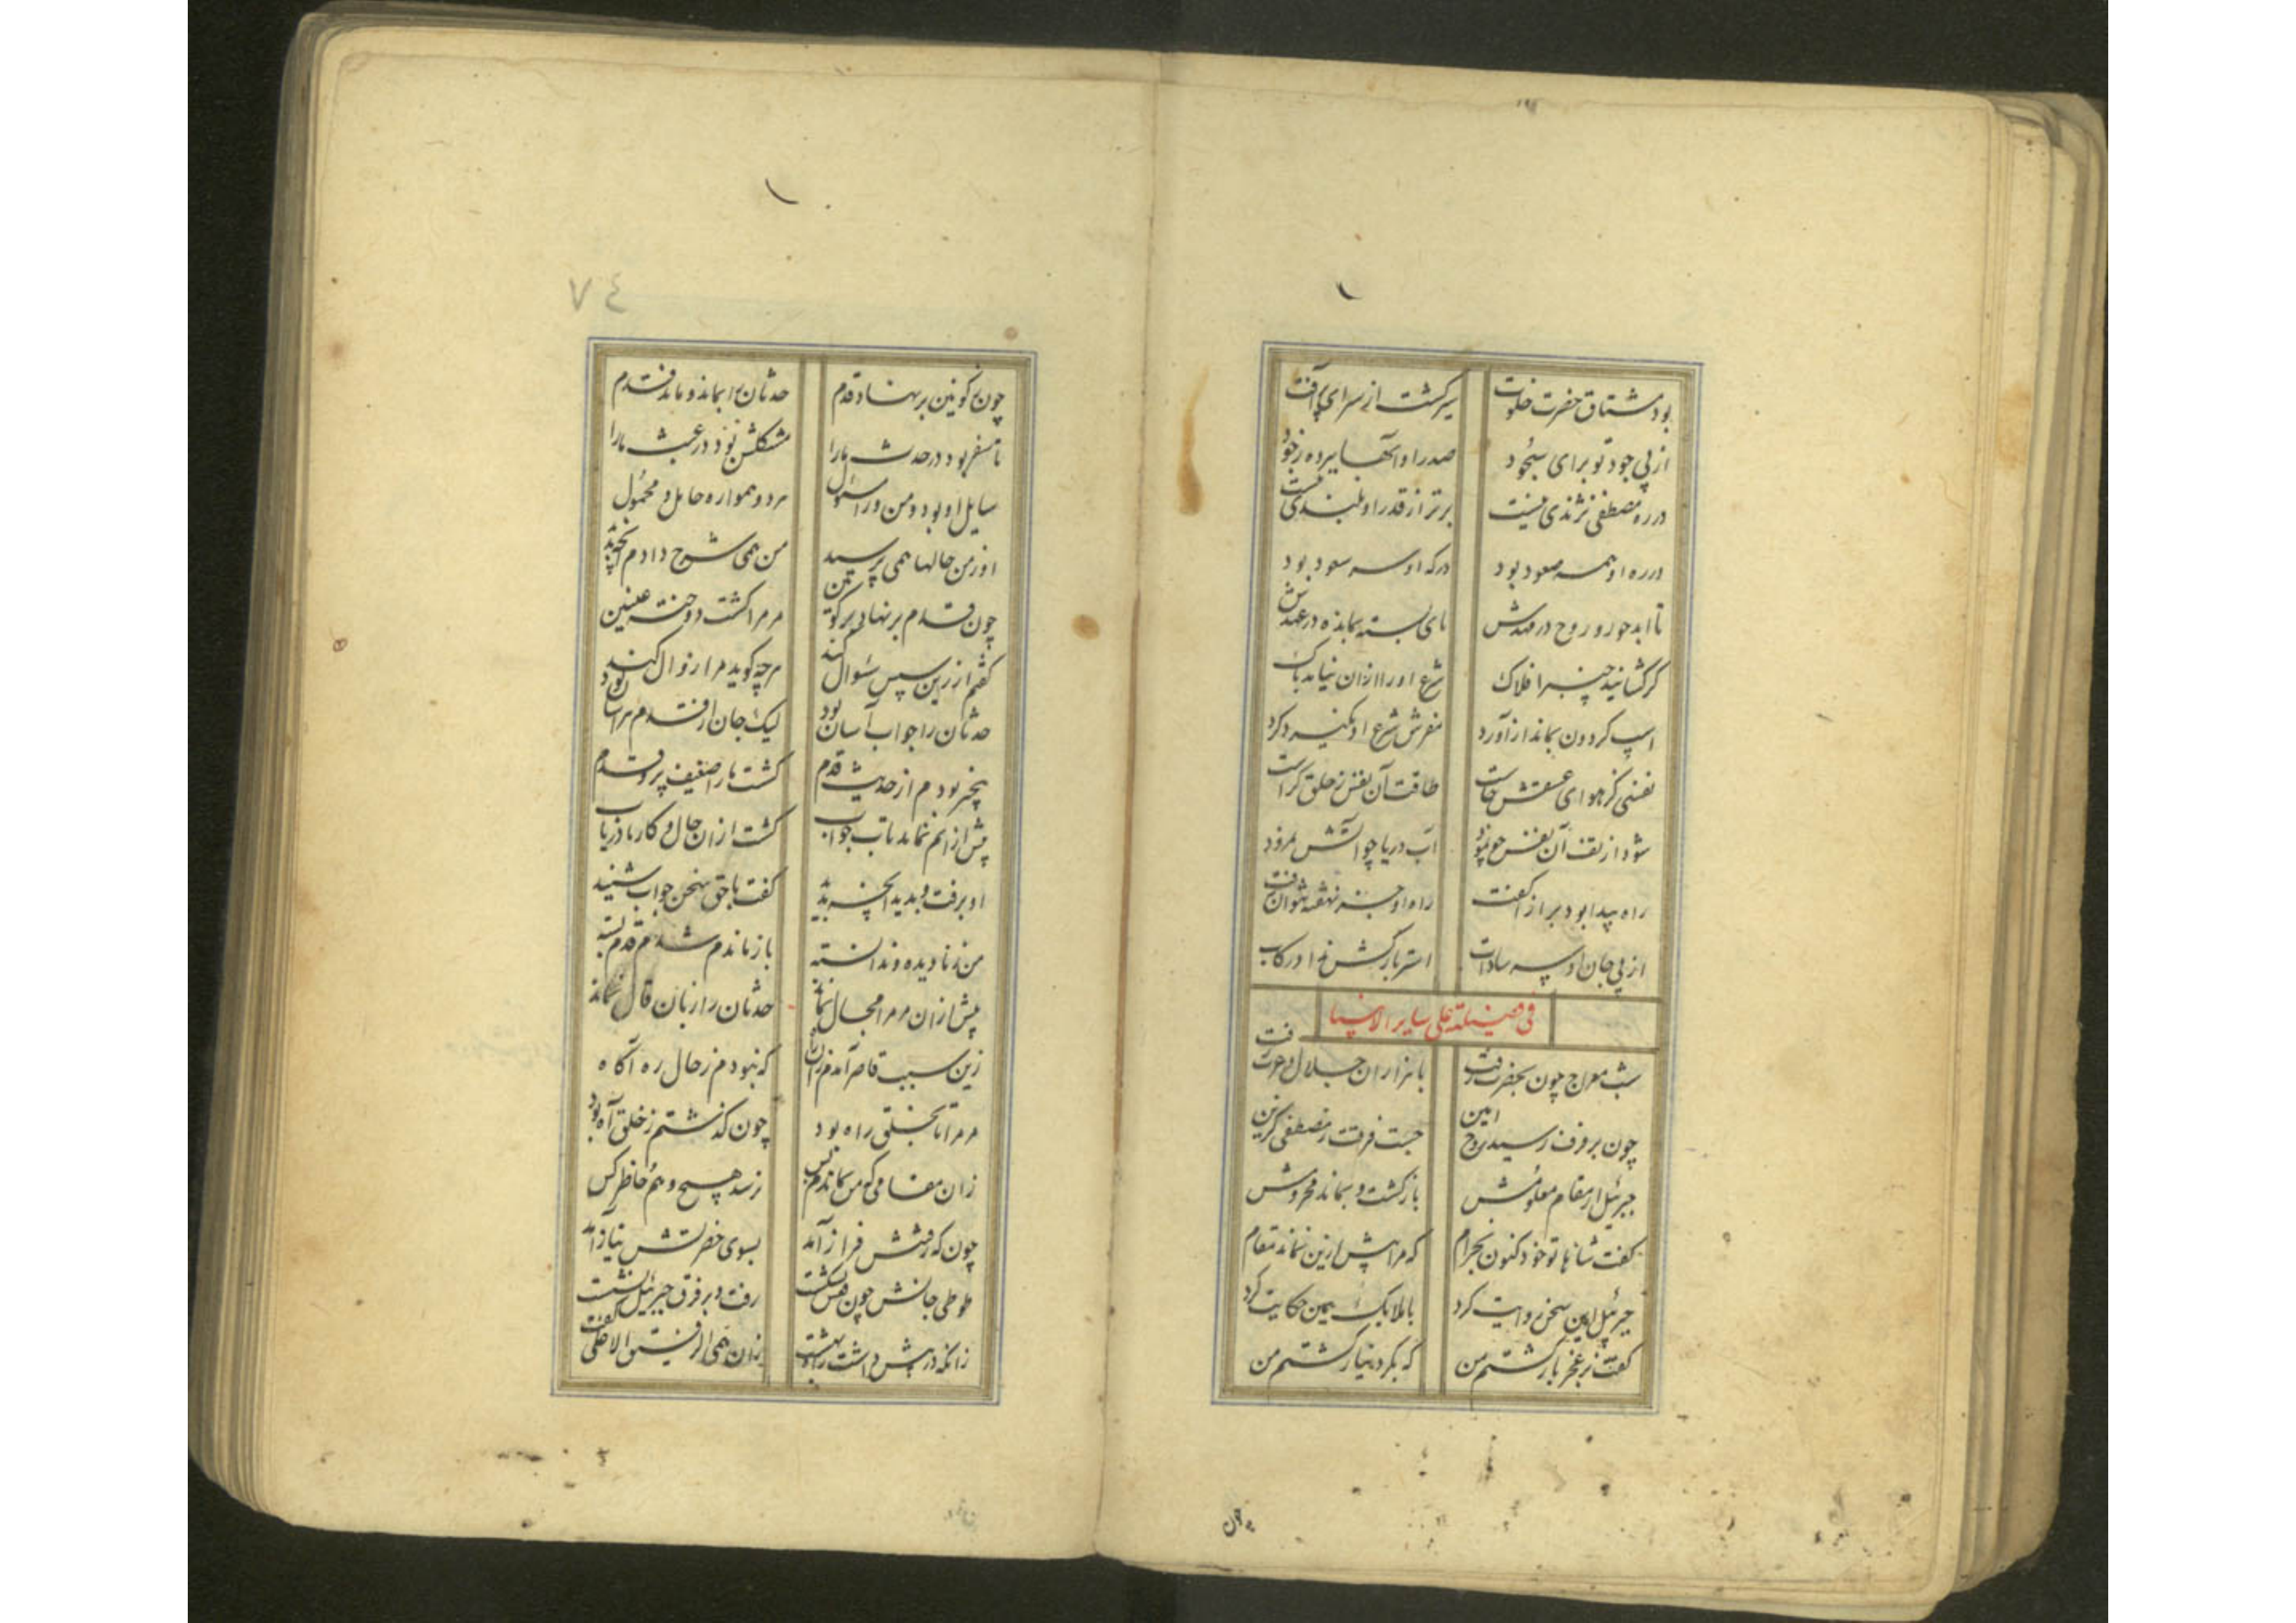 بود مشتاق حضرت خلوت سیر گشت از سرای پر آفت
از پی جود تو برای سجود صدر او انبیا
در ره مصطفی نژندی نیست برتر از قدر او بلندی نیست
در ره او همه صعود بود درگه او سعود بود
تا ابد حور و روح در مهدش پای بسته بمانده در عهدش
گر گشایند چنبر افلاک شرع او را ازان نیاید باک
اسپ گردون بماند از آورد مفرش شرع او نگیرد گرد
نفسی کز هوای عشقش خاست طاقت آن نفس ز خلق کراست
شود از تف آن نفس آب دریا چو آتش نمرود
راه پیدا بود راه او جز نهفته نتوان رفت
از پی جان او
فی فضیلته علی سایر الانبیا
شب معراج چون بحضرت رفت با هزاران جلال و عزت رفت
چون برفرف رسید روح امین جست فرقت ز مصطفی گزین
جبرئیل از مقام معلومش بازگشت و بماند محرومش
گفت شاها تو خود کنون بخرام که مرا پیش ازین نماند مقام
جبرئیل امین سخن روایت کرد با ملایک همین حکایت کرد
گفت ز عجز باز گشتم من که بگرد نیاز گشتم من
چون
٧٤
چون بکونین بر نهاد قدم حدثان را بماند و ماند قدم
تا سفر بود در حدث ما را مشکلش بود در عبث ما را
سایل او بود و من ورا مسئول هر دو همواره حامل و محمول
او ز من حالها همی پرسید من همی شرح دادم آنچه بدید
چون قدم بر نهاد بر کونین مر مرا گشت دوخته عینین
گفتم ار زین سپس سئوال کند هر چه گوید مرا زوال کند
حدثان را جواب آسان بود لیک جان از قدم هراسان بود
بیخبر بودم از حدیث قدم گشت ما را ضعیف پر و قدم
پیش ازانم نماند تاب جواب گشت ازان حال و کار ما دریاب
او برفت و بدید آنچه بدید گفت با حق سخن جواب شنید
من ز نادیده و ندانسته باز ماندم شدم قدم بسته
پیش ازان مر مرا مجال نماند حدثان را زبان قال نماند
زین سبب قاصر آمدم زان راه که نبودم ز حال ره آگاه
مر مرا تا بخلق راه بود چون گذشتم ز خلق آه بود
زان مقامی کو من بماندم پس نرسد هیچ وهم و خاطر کس
چون که رفتنش فراز آمد بسوی حضرتش نیاز آمد
طوطی جانش چون قفس بشکست رفت و بر فرق جبرئیل نشست
زانکه در پیش داشت راه بهشت زان همی الرفیق الاعلی گفت